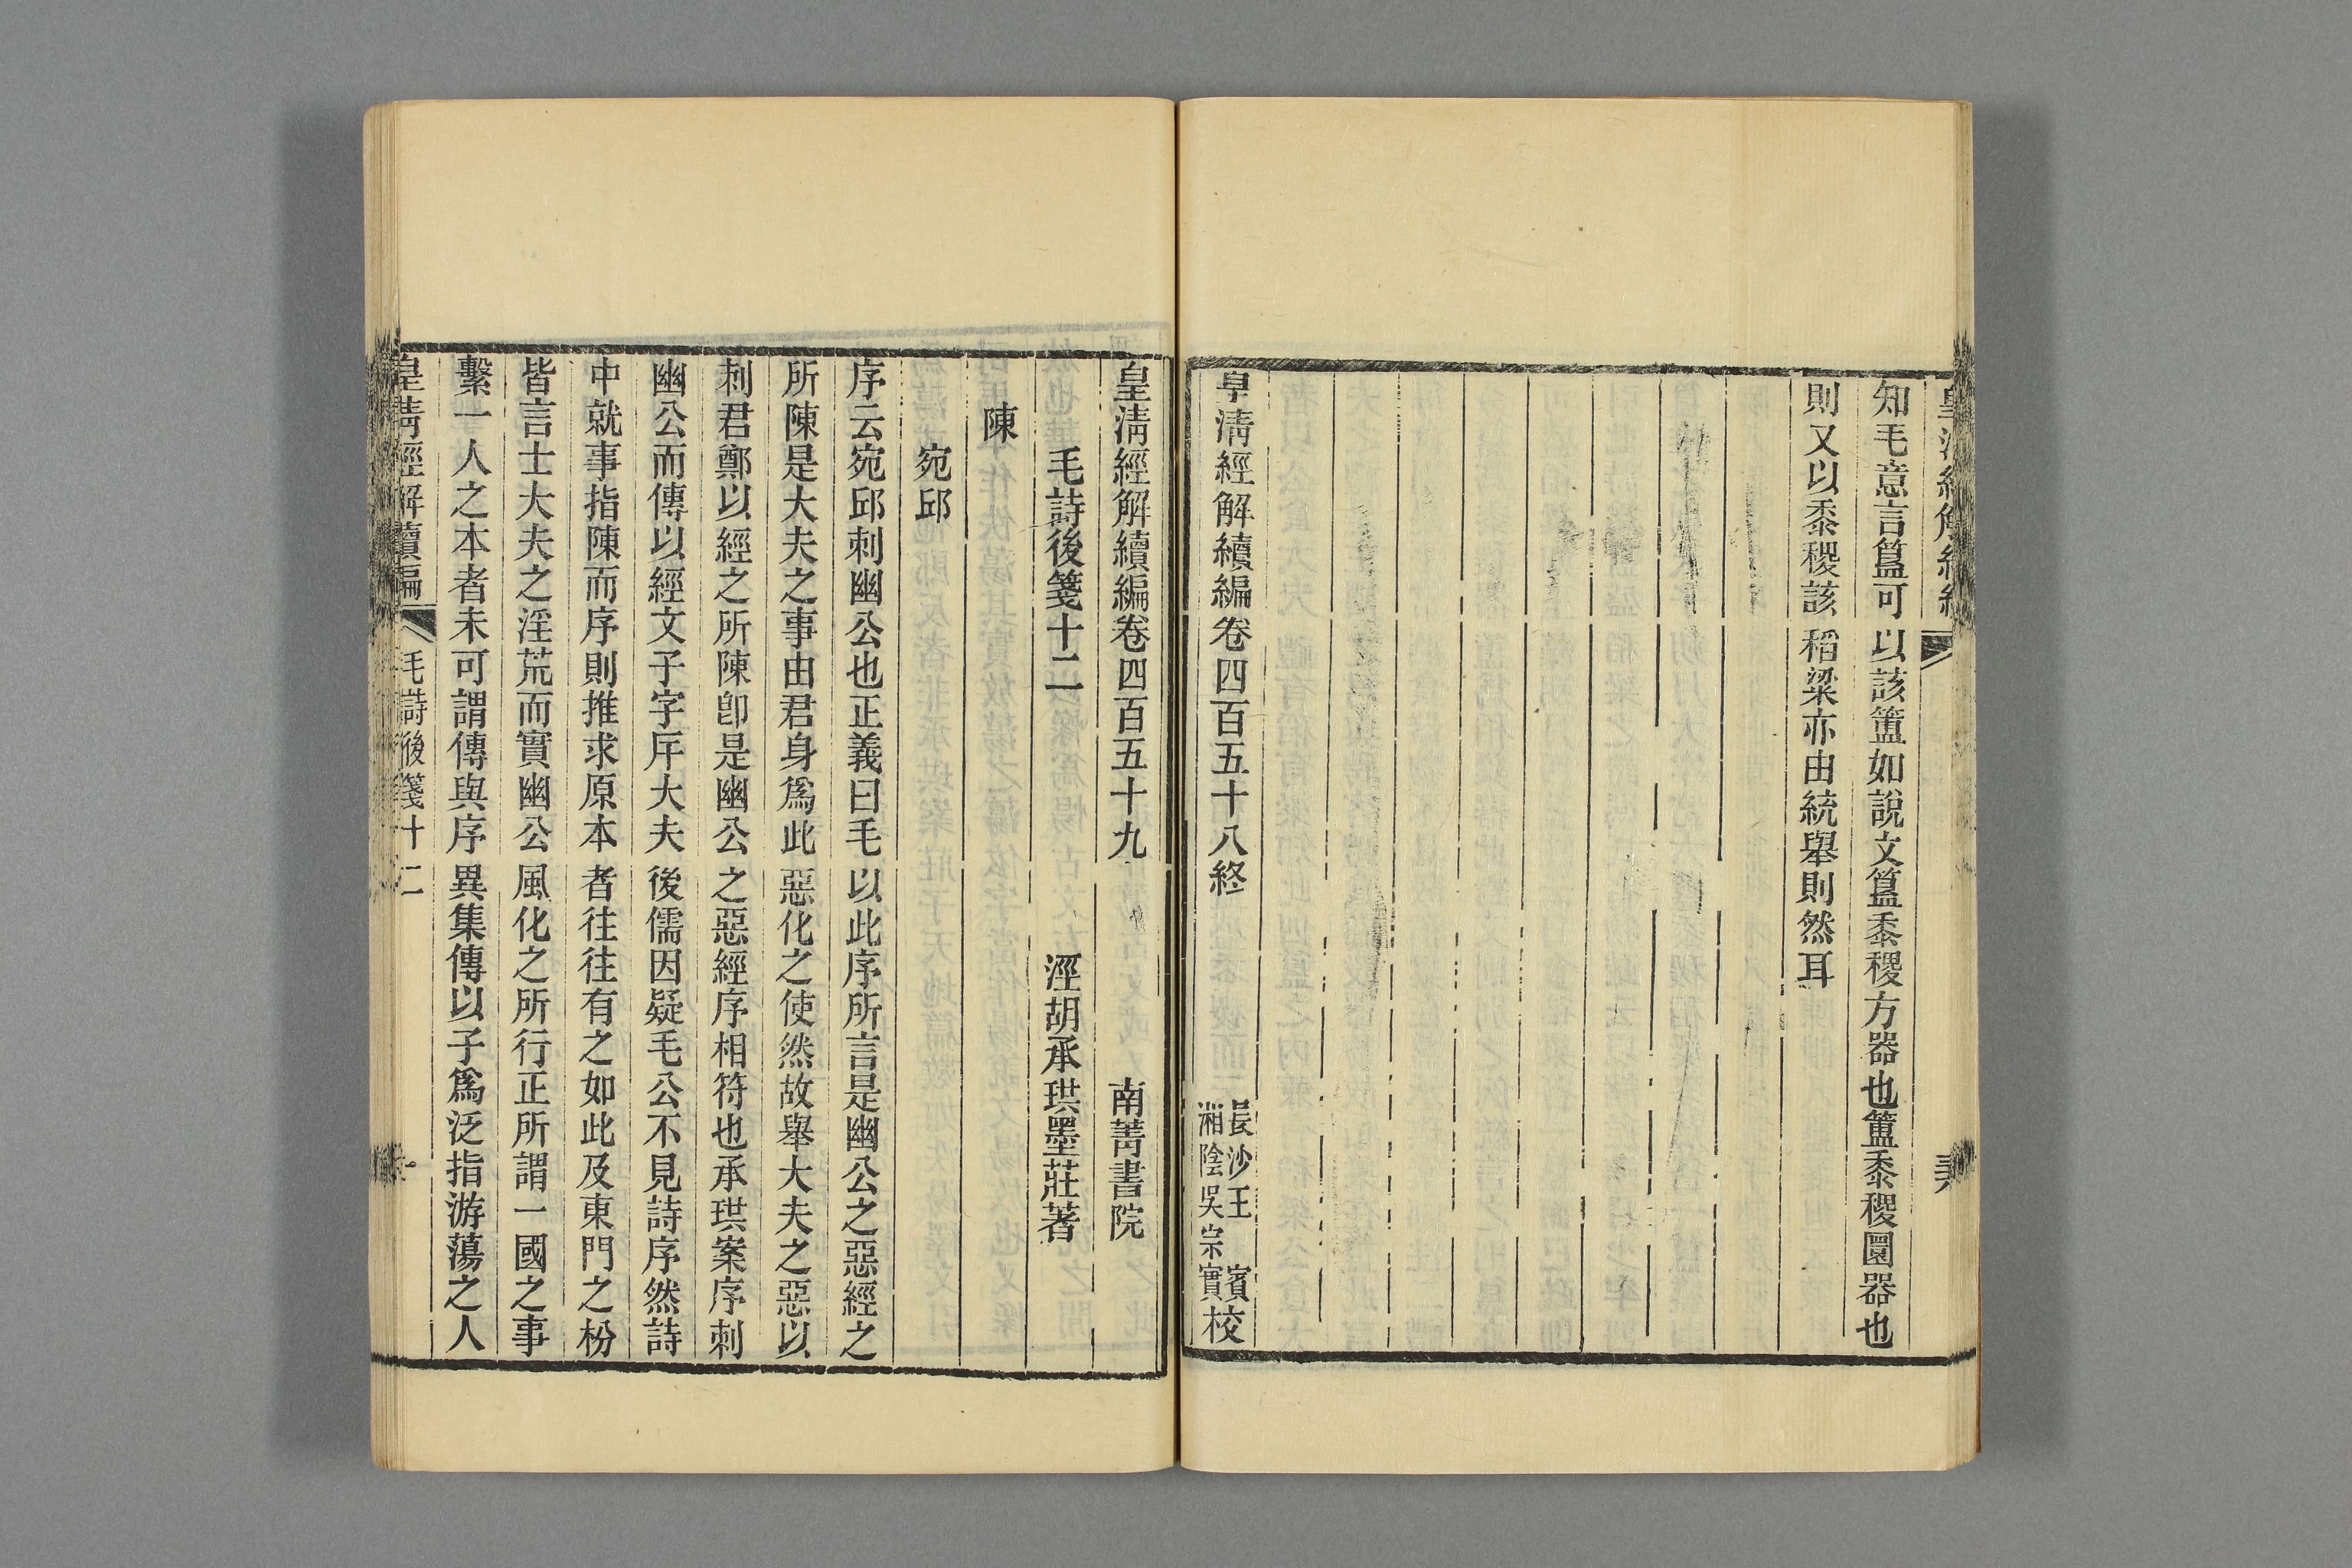 知毛意言簋可以該簠如說文簋黍稷方器也簠黍稷圜器也
則又以黍稷該稻粱亦由統舉則然耳
皇淸經解續編卷四百五十八終
長沙王 賓
湘陰吳宗實校
皇淸經解續編卷四百五十九
南菁書院
毛詩後箋十二
涇胡承珙墨莊著
陳
宛邱
序云宛邱刺幽公也正義曰毛以此序所言是幽公之惡經之
所陳是大夫之事由君身爲此惡化之使然故舉大夫之惡以
刺君鄭以經之所陳卽是幽公之惡經序相符也承珙案序刺
幽公而傳以經文子字斥大夫後儒因疑毛公不見詩序然詩
中就事指陳而序則推求原本者往往有之如此及東門之枌
皆言士大夫之淫荒而實幽公風化之所行正所謂一國之事
繫一人之本者未可謂傳與序異集傳以子爲泛指游蕩之人
皇淸經解續編
毛詩後箋十二